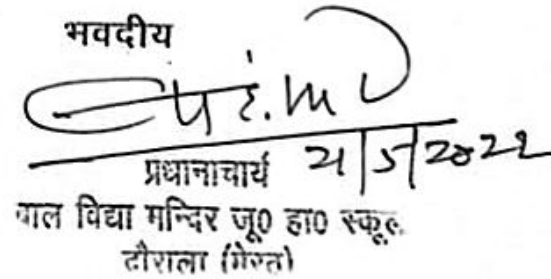 भवदीय
प्रधानाचार्य 21/5/2022
बाल विद्या मन्दिर जू0 हा0 स्कूल
दौराला (मेरठ)